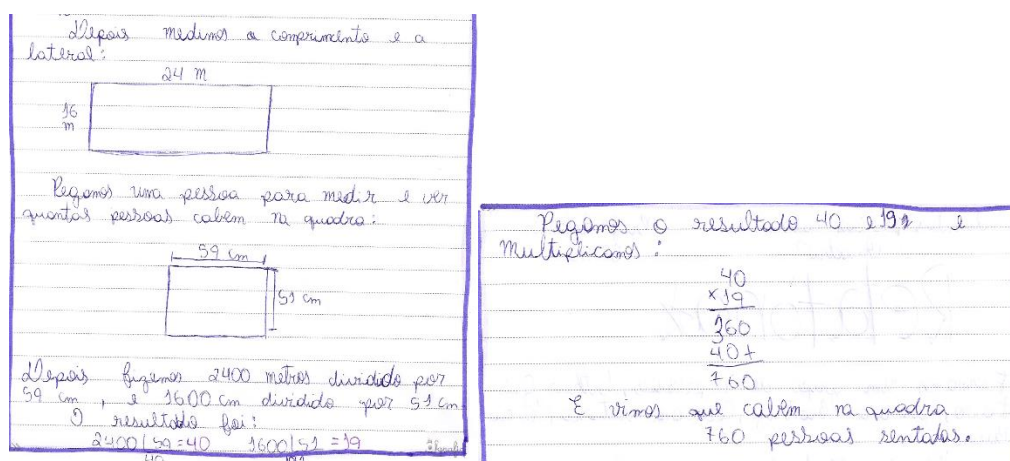 Depois medimos o comprimento e a
lateral:
24 m
16
m
Pegamos uma pessoa para medir e ver
quantas pessoas cabem na quadra:
59 cm
51 cm
Depois fizemos 2400 metros dividido por
59 cm, e 1600 cm dividido por 51 cm
O resultado foi:
2400/59=40 1600/51=19
Pegamos o resultado 40 e 19 e
multiplicamos:
40
×19
360
40+
760
E vimos que cabem na quadra
760 pessoas sentadas.